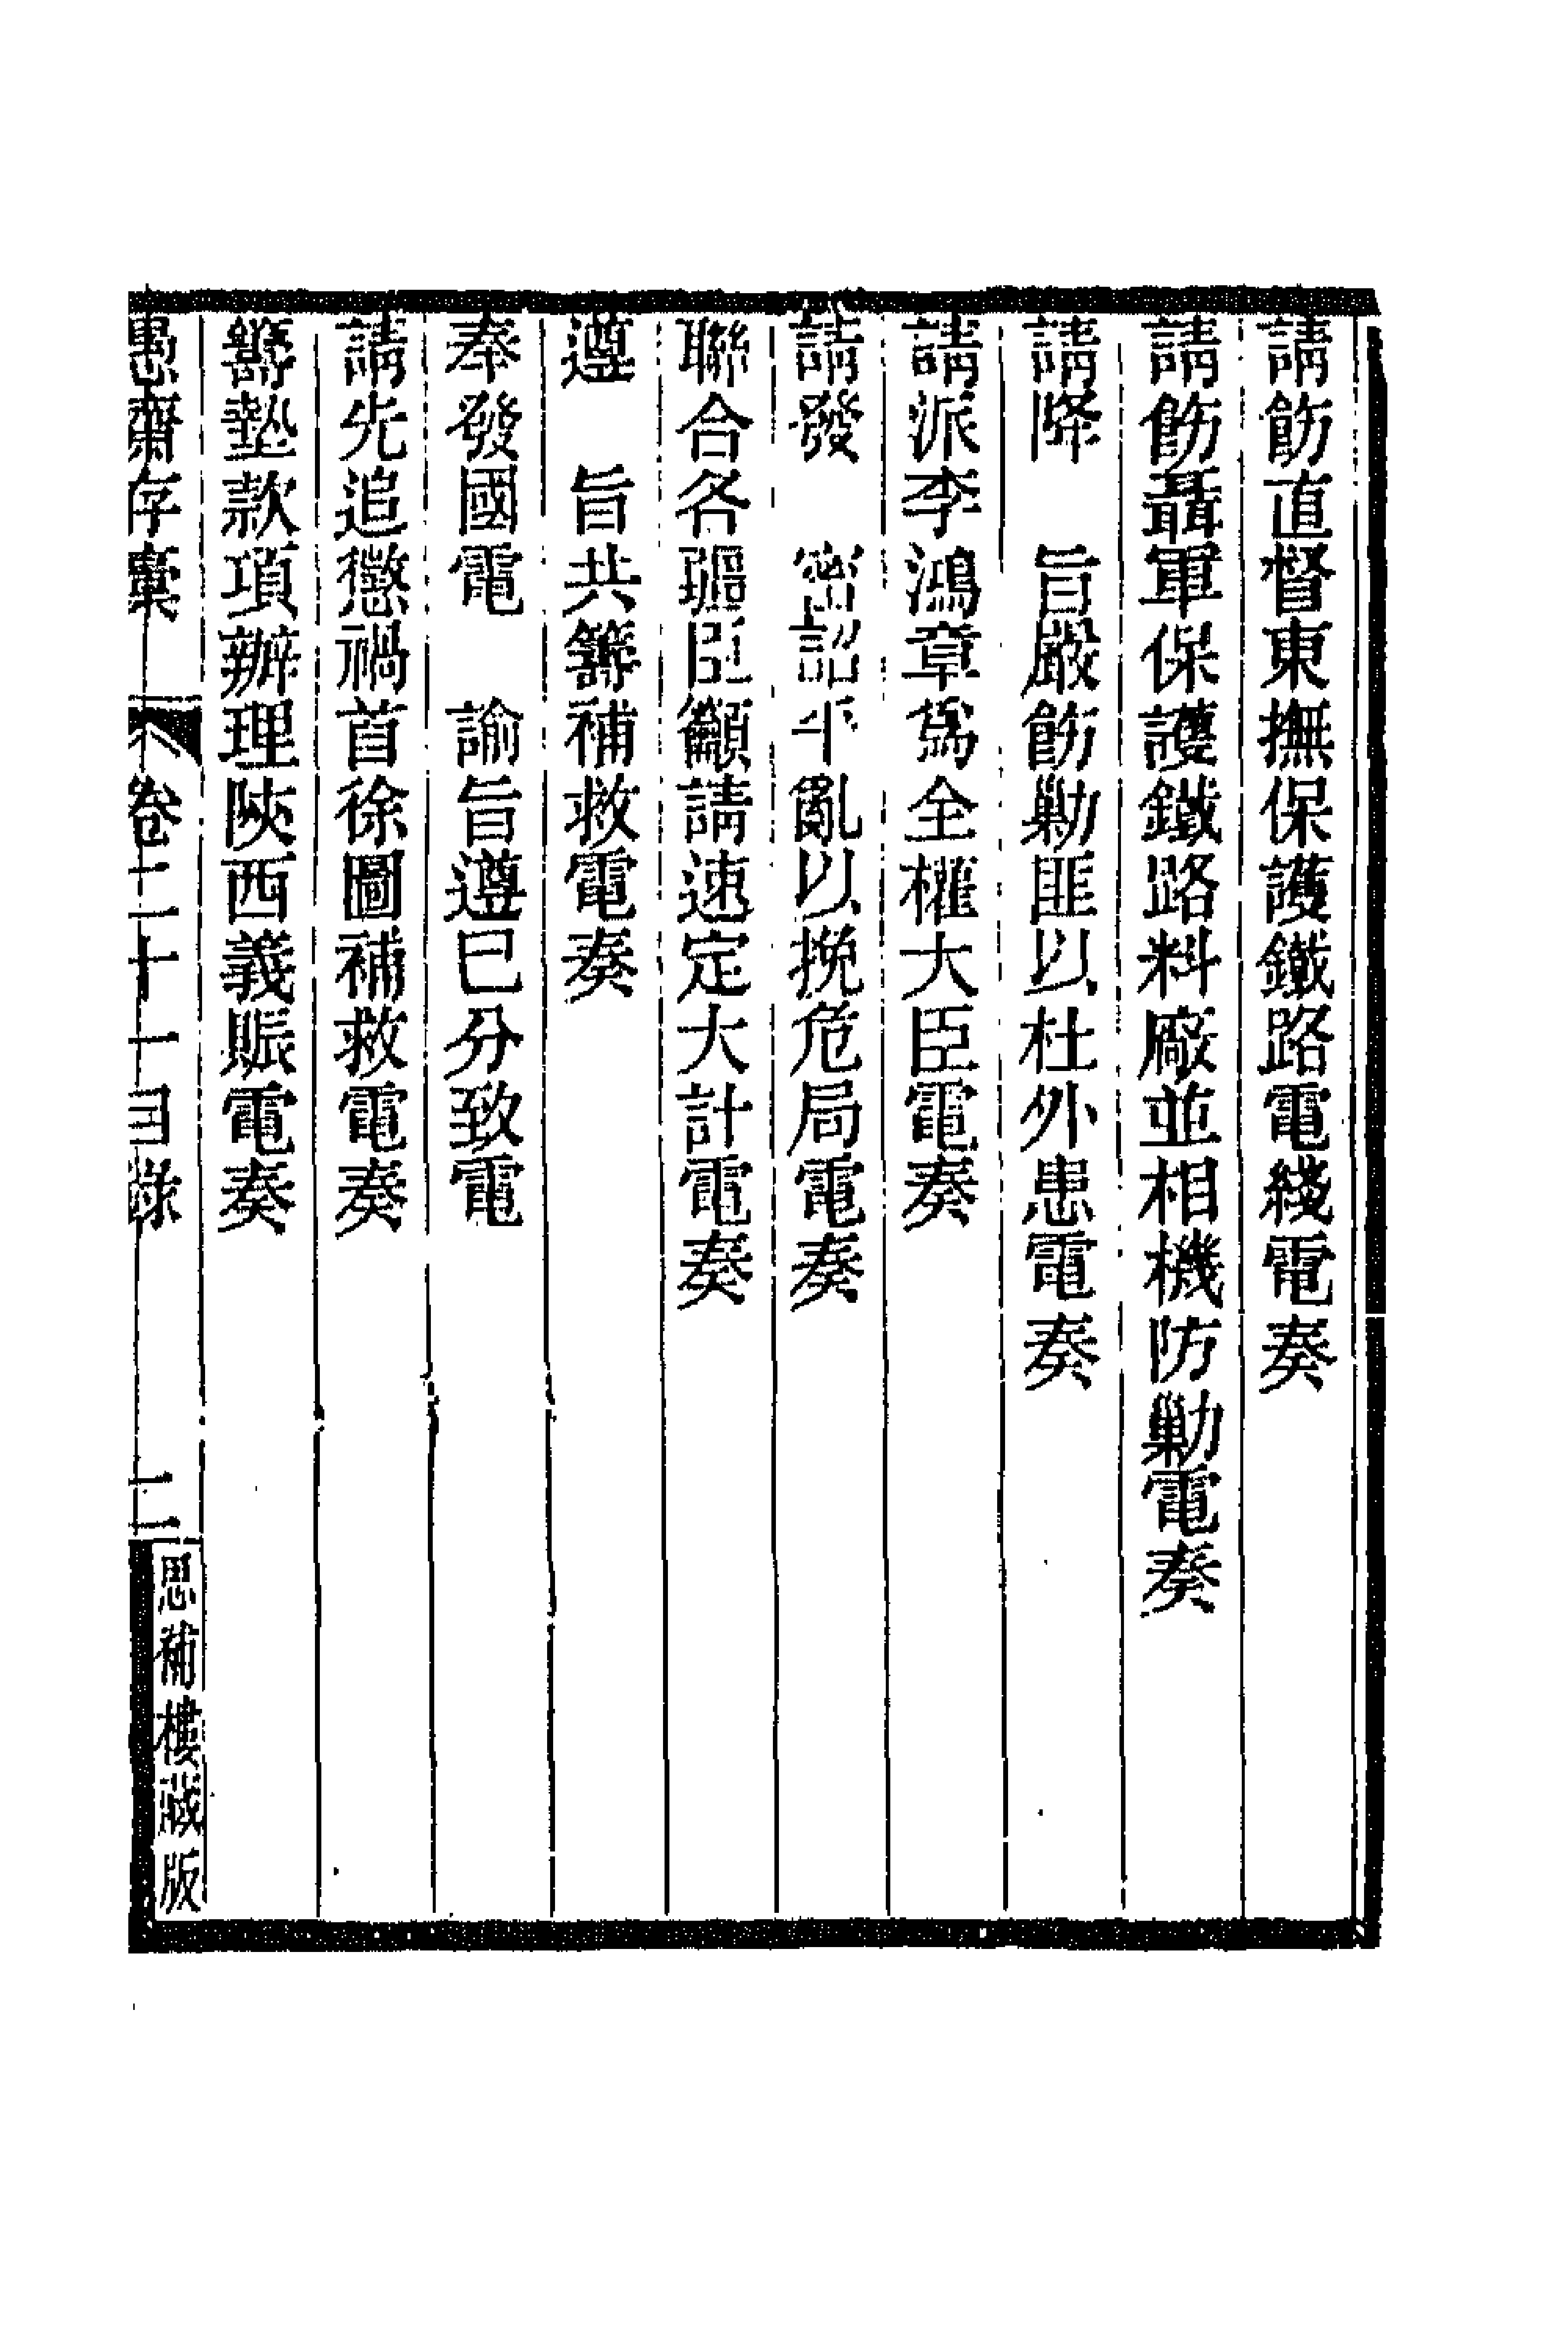 請飭直督東撫保護鐵路電綫電奏
請飭聶軍保護鐵路料廠並相機防勦電奏
請降　旨嚴飭勦匪以杜外患電奏
請派李鴻章爲全權大臣電奏
請發　密詔平亂以挽危局電奏
聯合各疆臣籲請速定大計電奏
遵　旨共籌補救電奏
奉發國電　諭旨遵已分致電
請先追懲禍首徐圖補救電奏
籌墊款項辦理陜西義賑電奏
愚齋存稾　卷二十一目錄　二
思補樓藏版